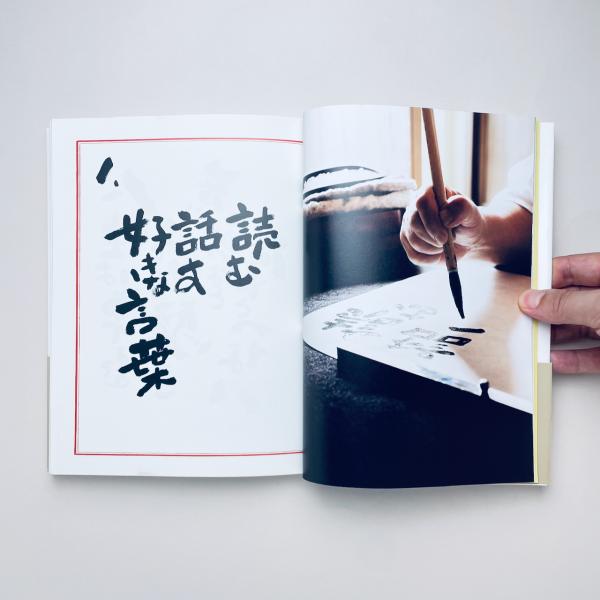 1、
読む
話す
好きな言葉